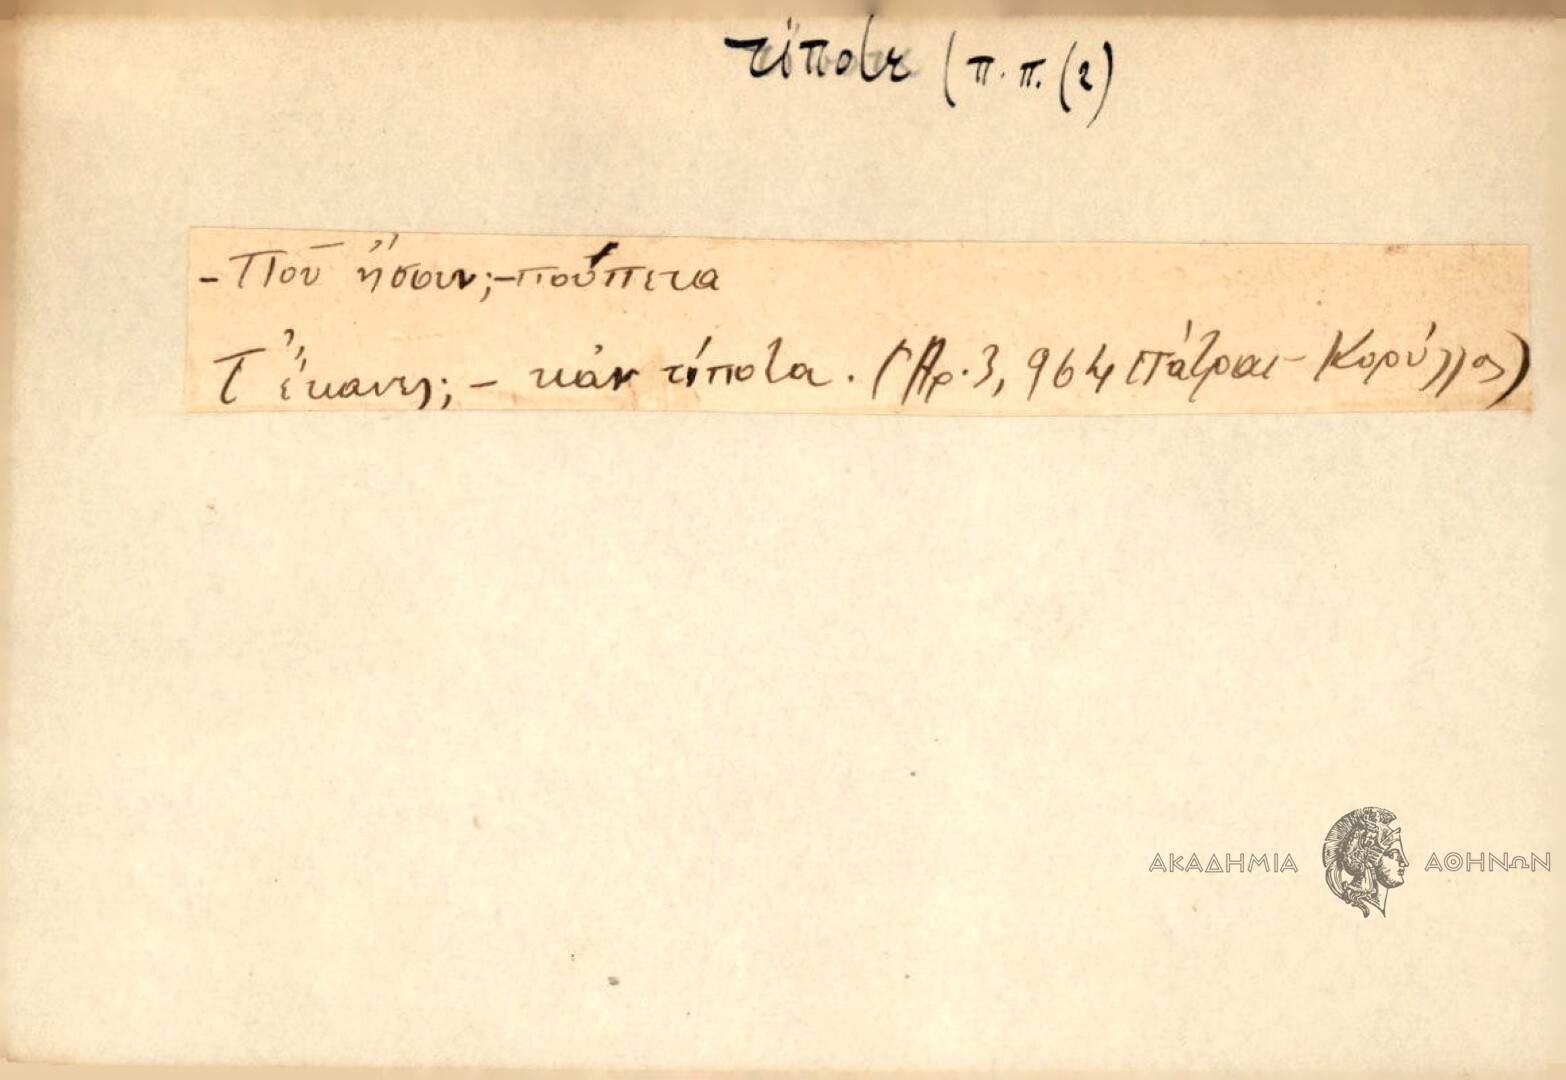 τίποτε (π.π. (2)
- Ποῦ ἤσουν; - πούπετα
Τ' ἔκανες; - κἀν τίποτα. (Ἀρ. 3, 964 Πάτραι - Κορύλλος)
ΑΚΑΔΗΜΙΑ ΑΘΗΝΩΝ